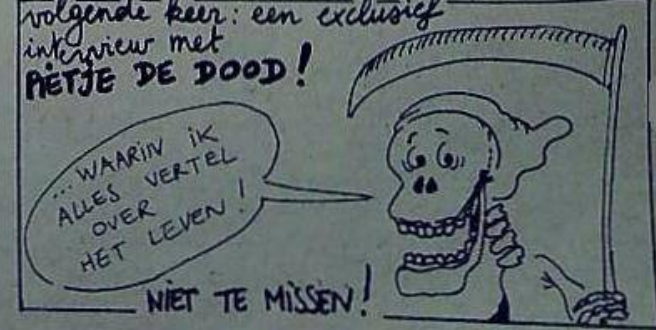 volgende keer: een exclusief
interview met
PIETJE DE DOOD!
...WAARIN IK
ALLES VERTEL
OVER
HET LEVEN!
NIET TE MISSEN!